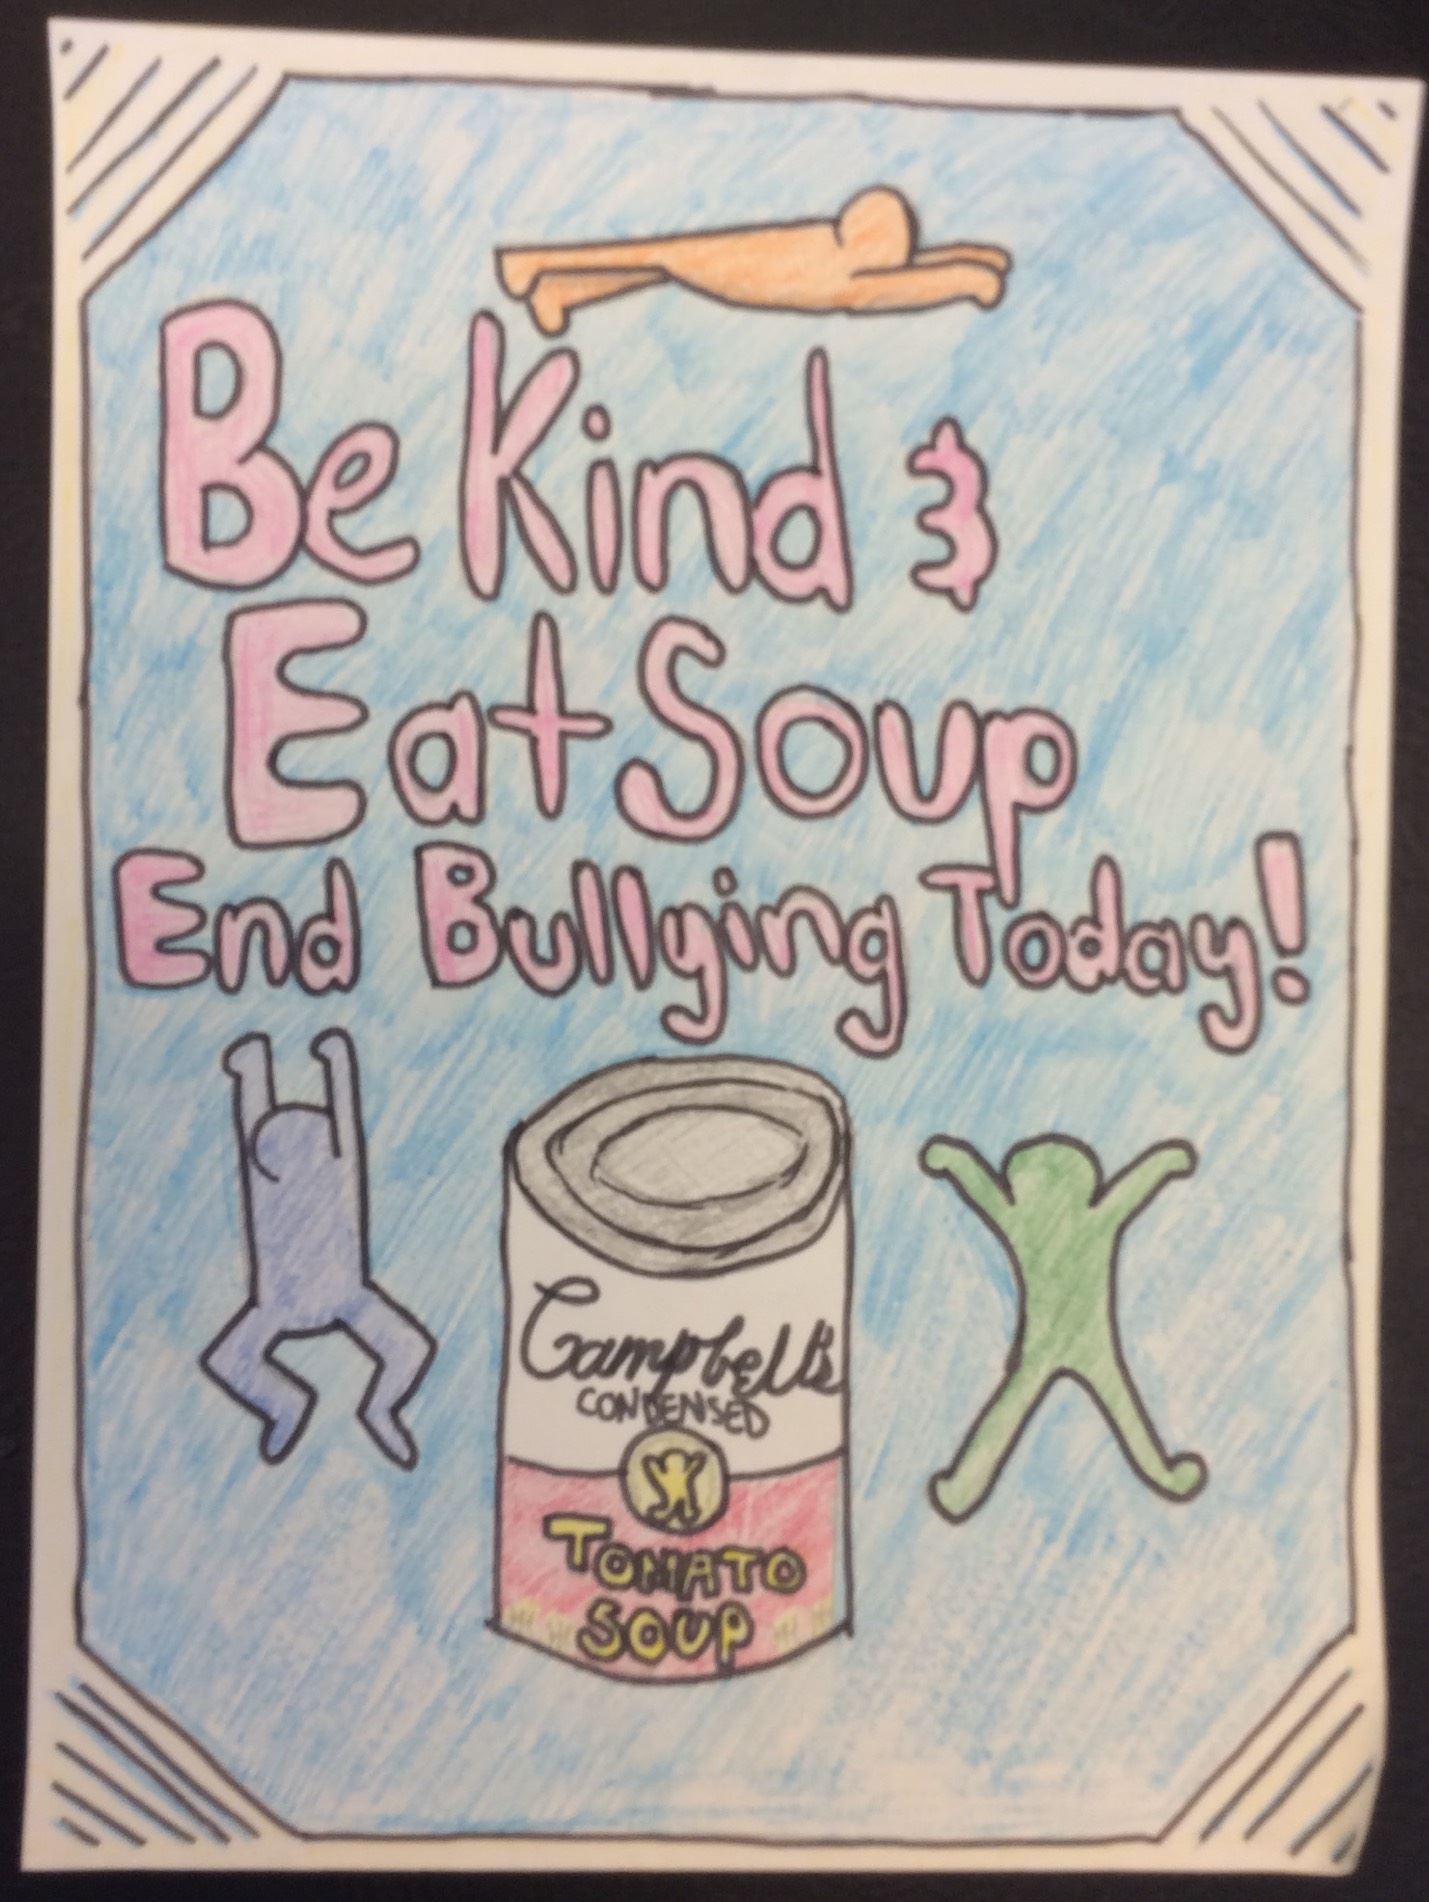 Be Kind &
Eat Soup
End Bullying Today!
Campbell's
CONDENSED
TOMATO
SOUP